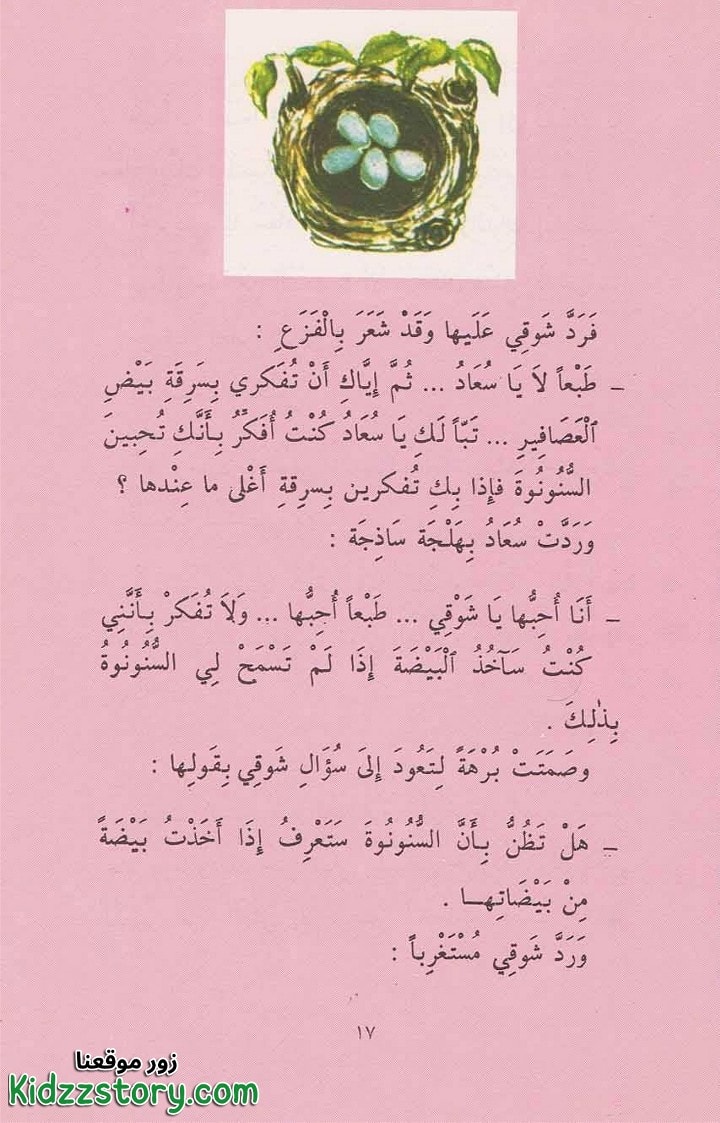 فَرَدَّ شَوقِي عَلَيها وَقَدْ شَعَرَ بِالْفَزَعِ :
– طَبْعاً لاَ يَا سُعَادُ ... ثُمَّ إِيَّاكِ أَنْ تُفَكري بِسَرِقَةِ بَيْضِ
ٱلْعَصَافِيرِ ... تَبّاً لَكِ يَا سُعَادُ كُنْتُ أُفَكِّرُ بِأَنَّكِ تُحِبينَ
السُّنُونُوةَ فإِذا بِكِ تُفكرين بِسرِقةِ أَغْلى ما عِنْدها ؟
وَرَدَّتْ سُعَادُ بِهَلْجَة سَاذِجَة :
– أَنَا أُحِبُّها يَا شَوْقِي ... طَبْعاً أُحِبُّها ... وَلاَ تُفَكرْ بِأَنَّنِي
كُنْتُ سَآخُذُ ٱلْبَيْضَةَ إِذَا لَمْ تَسْمَحْ لِي السُّنُونُوةُ
بِذٰلِكَ .
وصَمَتَتْ بُرْهَةً لِتَعُودَ إِلىَ سُؤَالِ شَوقِي بِقَولِها :
– هَلْ تَظُنُّ بِأَنَّ السُّنُونُوةَ سَتَعْرِفُ إِذَا أَخَذْتُ بَيْضَةً
مِنْ بَيْضَاتِهـا .
وَرَدَّ شَوقِي مُسْتَغْرِباً :
١٧
زور موقعنا
Kidzzstory.com